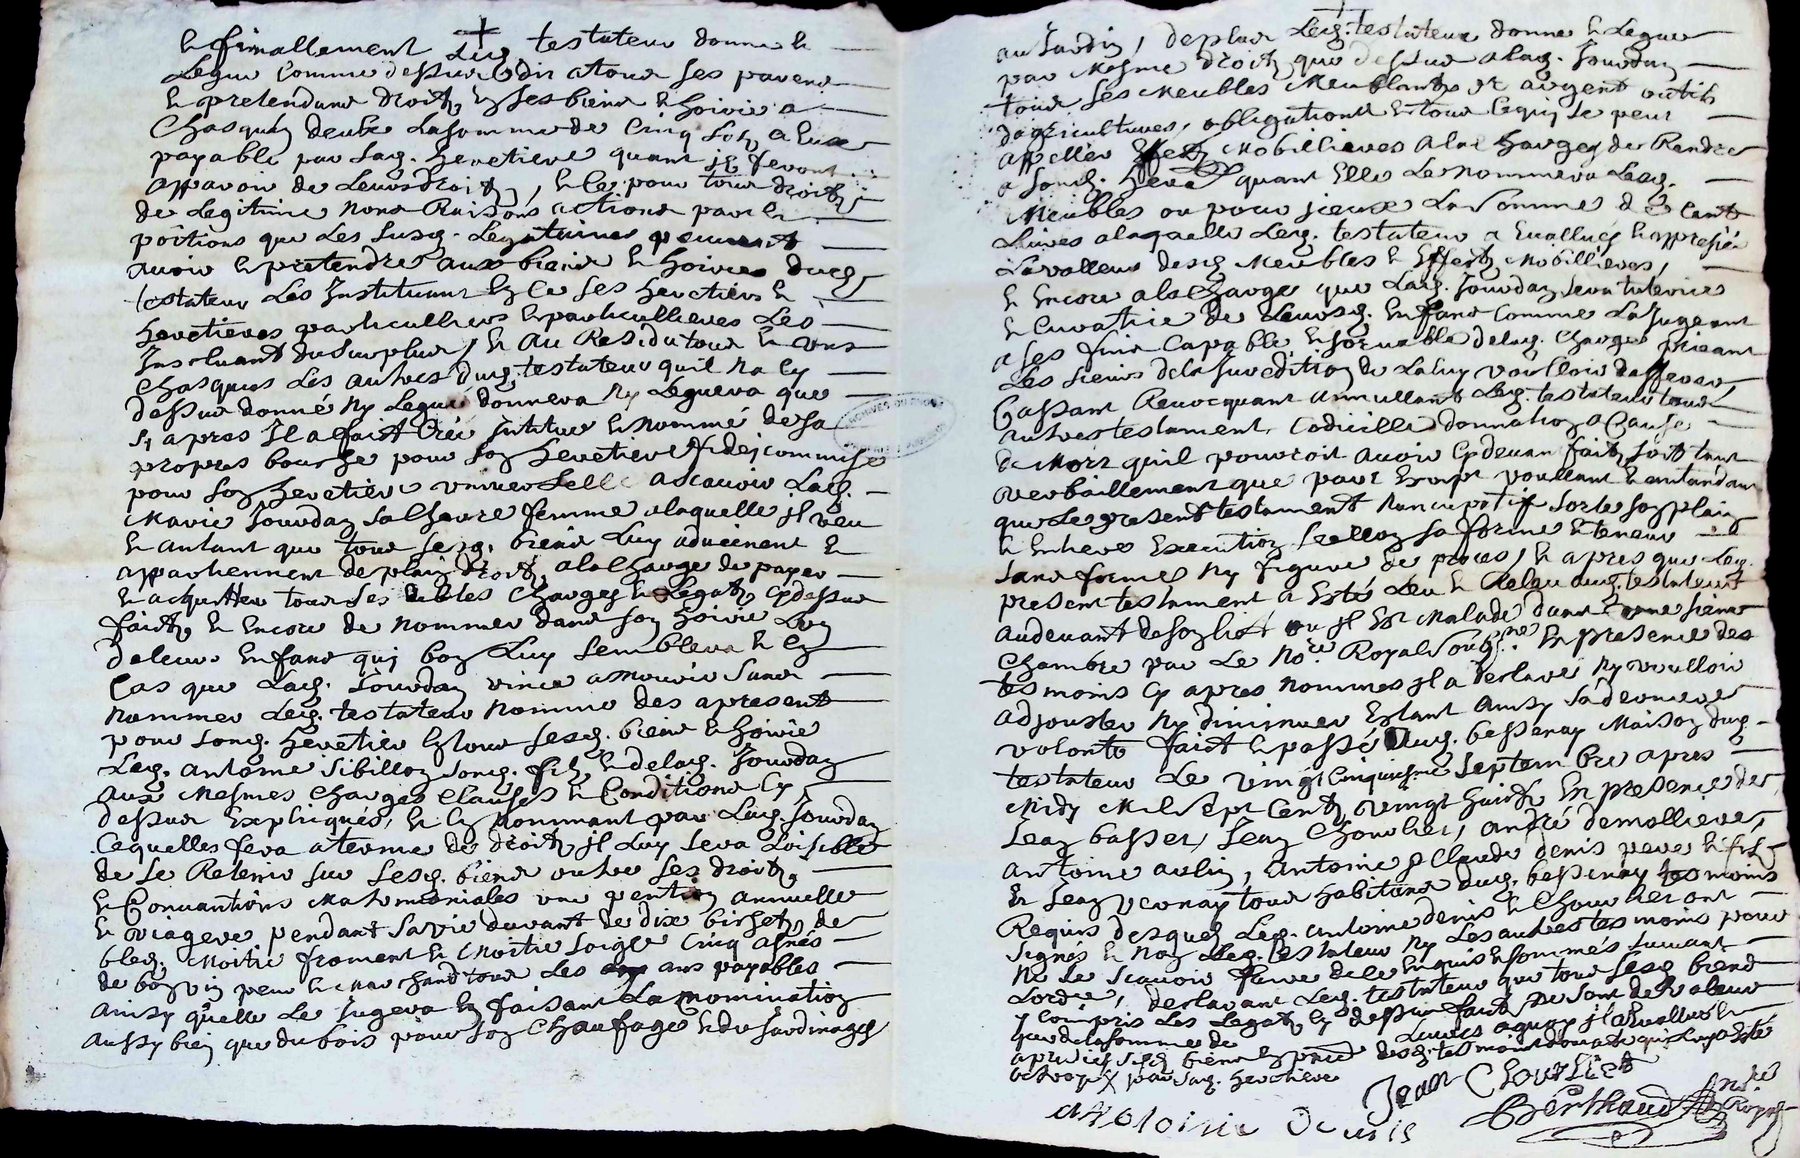 & finallement Led. testateur donne &
Legue comme dessus & dit a tous ses parens
& pretendans droitz en ses biens & hoirie a
Chasquin deulx La somme de Cinq solz a eux
payable par Lad. heretiere quant ilz feront
apparoir de Leurs droitz, & ce pour tous droitz
de Legitime Noms Raisons actions parts &
portions que Les susd. Legataires peuvent
avoir & pretendre aux biens & hoirie dud.
testateur Les Instituant en ce ses heretiers &
heretieres particulliers & particullieres Les
Excluant du surplus, & Au Residu tous & uns
Chasques Les autres dud. testateur quil na cy
dessus donné Ny Legué donnera Ny Leguera que
sy apres Il a fait Créé Institue & nommé de sa
propres bouche pour son heretiere fideicommise
pour son heretiere universelle ascavoir Lad.
Marie Jourdan sa Chere femme a laquelle il veu
& antant que tous sesd. biens Luy advienent &
appartiennent de plain droit, a la Charge de payer
& acquitter tous ses debtes Charges & Legatz cy dessus
faitz & Encore de nommer dans son hoirie Lun
de leurs Enfans qui bon Luy semblera & en
Cas que Lad. Jourdan vince a mourir sans
nommer Led. testateur nomme des apresent
pour sond. heretier en tous sesd. biens & hoirie
Led. antoine Sibillon sond. filz & de lad. Jourdan
aux mesmes Charges Clauses & Conditions cy
dessus Expliqués, & en Nommant par Lad. Jourdan
Cequelles fera a terme de droit, il Luy sera Loisible
de se Retenir sur sesd. biens outre ses droitz
& Convantions Matrimoniales une pention annuelle
& viagere pendant sa vie durant de dix bichetz de
bled, Moitie froment & Moitie soigle Cinq asnés
de bon vin pur & Marchand tous Les ans payables
ainsy quelle Le Jugera En faisant La nomination
aussy bien que du bois pour son Chauffage & du Jardinages
au Jardin, de plus Led. testateur donne & Legue
par Mesme droit que dessus a lad. Jourdan
tous ses Meubles Meublants et argent outils
dagricultures, obligations & tous Cequi se peut
appeller Effectz Mobillieres a la Charges de Rendre
a sond. here quant Elle Le nommera Lesd.
Meubles ou pour iceux La somme de Cent
Livres a laquelle Led. testateur a Evallués & appresié
La valleur desd. Meubles & Effectz Mobillieres,
& Encore a la Charge que Lad. Jourdan sera tuterice
& Curatrice de Leursd. Enfans comme La Jugeant
a ses fins Capable & solvable de lad. Charge priant
Les sieurs de la Juredition de Laluy vouloir defferer,
Cassant Revocquant annullant Led. testateur tous
autres testament, Codicille donnation a Cause
de Mort quil pourroit avoir cy devant faitz soit tant
verbaillement que part Escript voullant & antandant
que Le present testament Nuncupatif sorte son plain
& Entiere Execution sellon sa forme & teneur
sans forme Ny figure de proces, & apres que Led.
present testament a Esté Leu & Releu aud. testateur
audevant de son lict ou il Est Malade dans Une sienne
Chambre par Le Nore. Royal Soubsne. En presence des
tesmoins cy apres Nommes il a Declaré Ny voulloir
adjouster Ny diminuer Estant Ainsy sa derniere
volonté fait & passé Aud. bessenay Maison dud.
testateur Le vingt Cinquiesme Septembre apres
Midy Mil sept Centz vingt huit, En presence de
Jean basset, Jean Chourlier, andré demolliere,
antoine aulin, antoine & Claude denis pere & fils
& Jean vernay tous habitans dud. bessenay tesmoins
Requis desquelz Led. antoine denis & Chourlier ont
signés & Non Led. testateur Ny Les autres tesmoins pour
Ne Le scavoir faire de ce Enquis & sommés suivant
Lordre, declarant Led. testateur que tous sesd. biens
y Compris Les Legatz cy dessus faitz ne sont de valeur
que de la somme de Livres aquoy il a Evallué &
apresié sesd. biens En presence desd. tesmoins
octroyé pour Lad. heretiere
Jean Chourlier
antoine Denis
Berthaud
Nore Royal